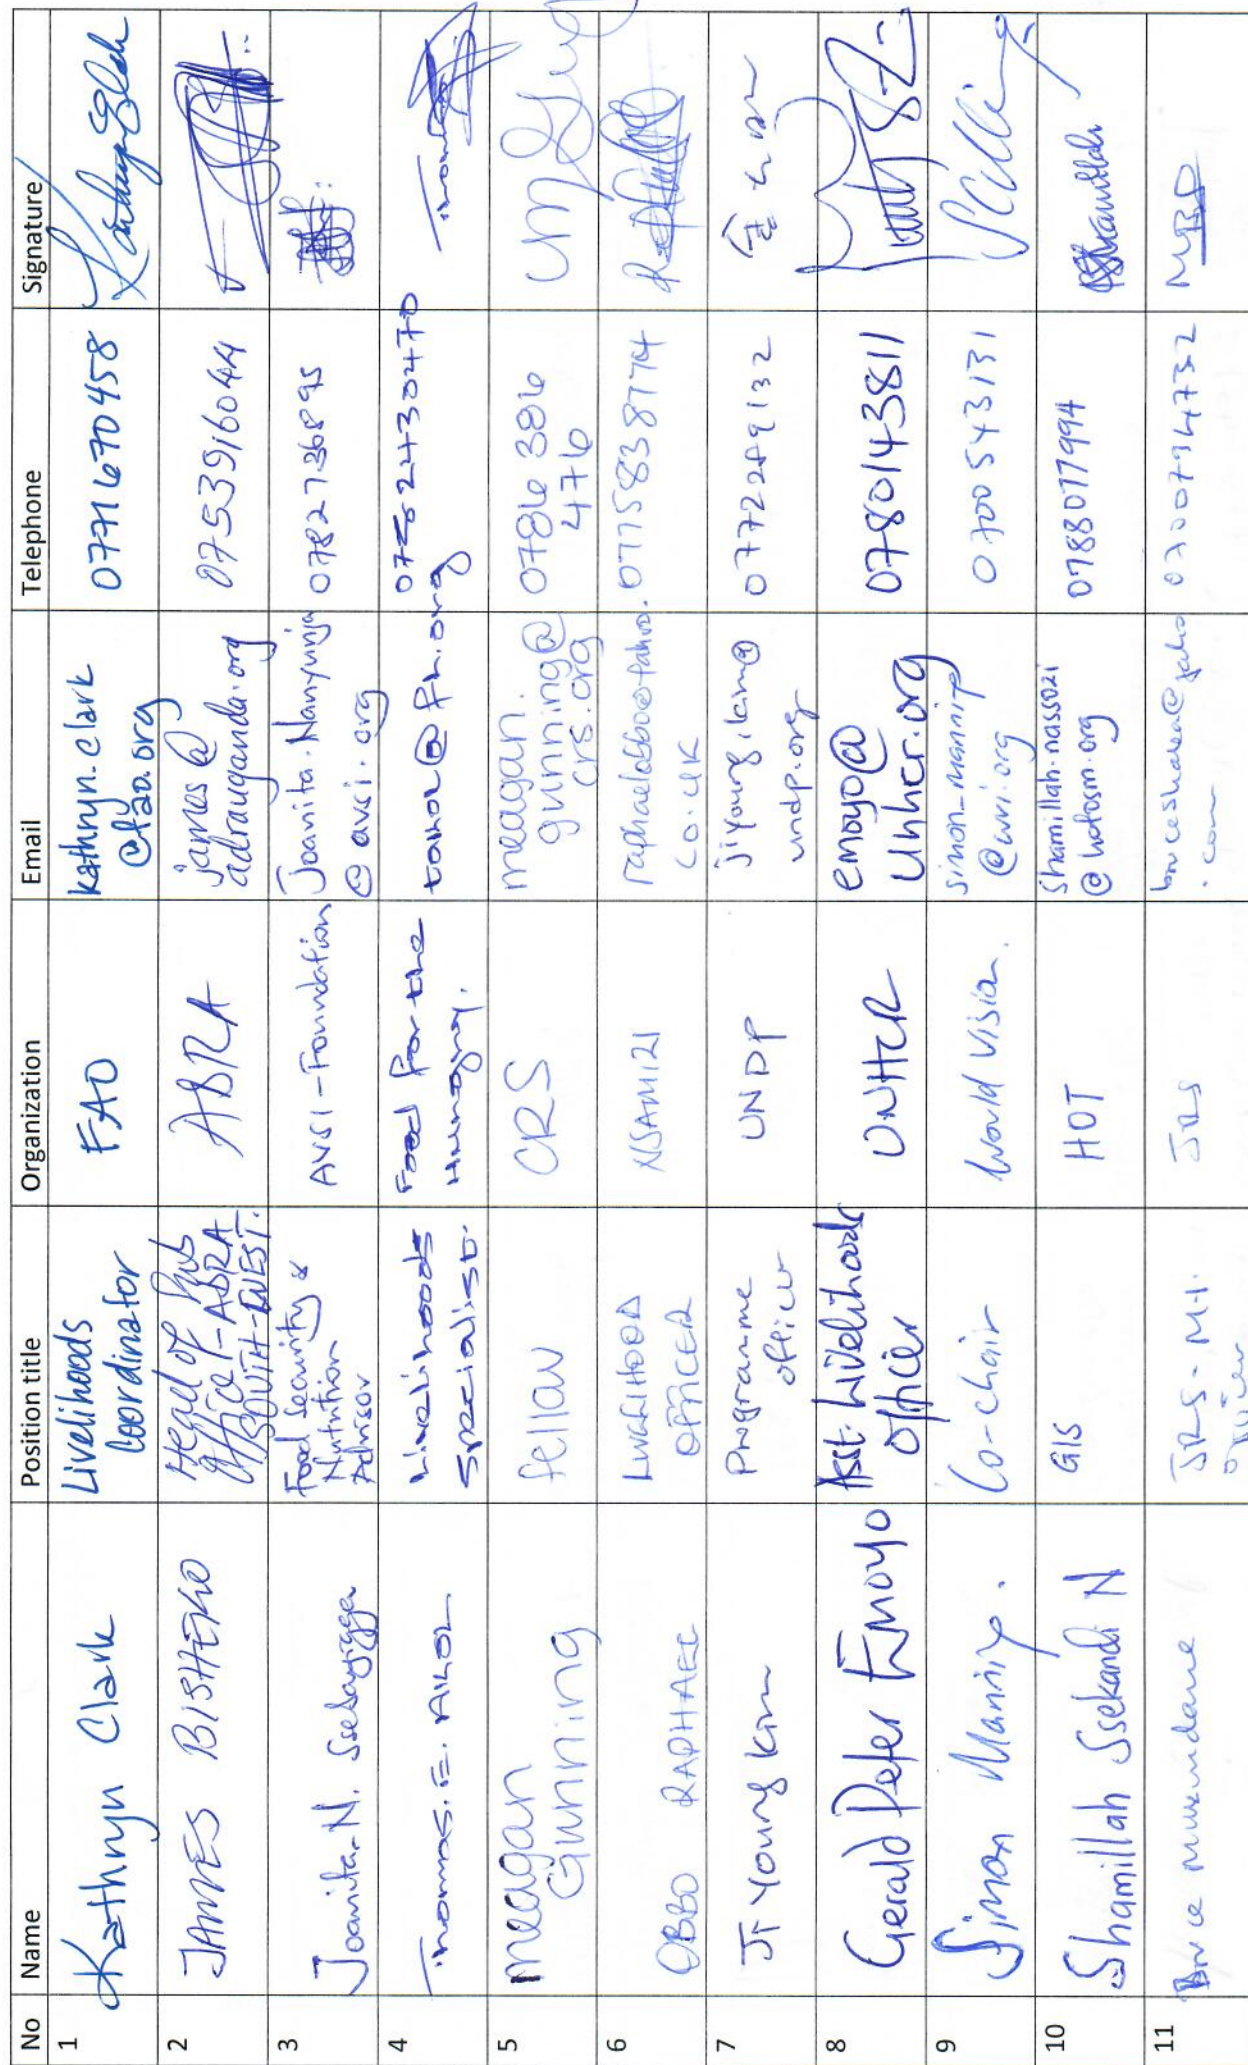 No Name Position title Organization Email Telephone Signature
1 Kathryn Clark Livelihoods Coordinator FAO kathryn.clark @fao.org 0771670458
2 JAMES BISHEKO Head of Sub Office - ADRA SOUTH-WEST. ADRA james@ adrauganda.org 0753916044
3 Joanita N. Food Security & Nutrition Advisor AVSI-Foundation Joanita.Nanyunja @avsi.org 0782736895
4 Thomas.E. Livelihoods Specialist. Food for the Hungry. @fh.org
5 meagan Gunning fellow CRS meagan. gunning@ crs.org 0786386 476 
6 OBBO RAPHAEL LIVELIHOOD OFFICER NSAMIZI raphaelobbo@yahoo. co.uk 0775838774
7 Ji Young Kim Programme officer UNDP jiyoung.kim@ undp.org 0772289132
8 Gerald Peter Emoyo Asst. Livelihoods Officer UNHCR emoyo@ Unhcr.org 0780143811
9 Simon Manning. Co-chair World Vision. simon_manning @wvi.org 0700543131
10 Shamillah Ssekandi N GIS HOT shamillah.nassozi @hotosm.org 0788077994
11 Bruce JRS - officer JRS .com 0700794732